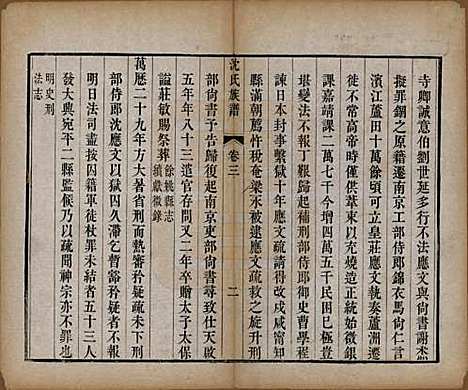 寺卿誠意伯劉世延多行不法應文與尙書謝杰
擬罪錮之原籍遷南京工部侍郎錦衣馬尙仁言
濱江蘆田十萬餘頃可立皇莊應文執奏蘆洲遷
徙不常高帝時僅供葦束以充燒造正統始徵銀
課嘉靖課二萬七千今增四萬五千民困已極豈
堪變法不報丁艱歸起補刑部侍郎御史曹學程
諫日本封事繫獄十年應文疏請得改戍咸甯知
縣滿朝薦忤稅奄梁永被逮應文疏救之旋升刑
部尙書予告歸復起南京吏部尙書不赴萬曆四十
五年年八十三遣官存問又二年卒贈太子太保
謚莊敏賜祭葬 餘姚縣志
續獻徵錄
萬歷二十九年方大暑省刑而熱審矜疑疏未下刑
部侍郎沈應文以獄囚久滯乞暫豁矜疑者不報
明日法司盡按囚籍軍徒杖罪未結者五十三人
發大興宛平二縣監候乃以疏聞神宗亦不罪也
明史刑
法志
沈氏族譜
卷三
二